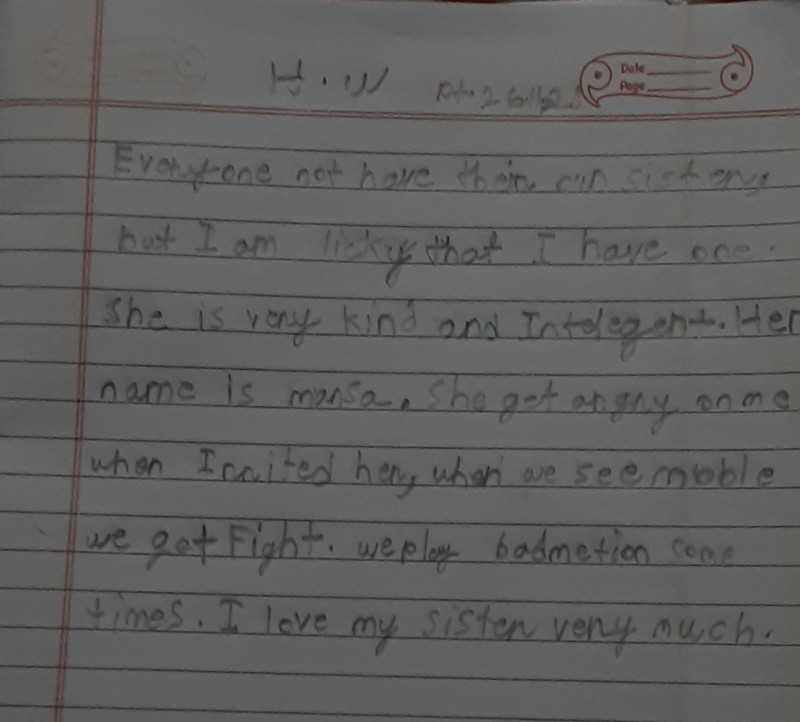 H.W
Date
Page
Everyone not have their own sister,
but I am licky that I have one.
She is very kind and Intelegent. Her
name is mansa, She get angry on me
when I rrited her, when we see moble
we get Fight. we play badmetion some
times. I love my sister very much.